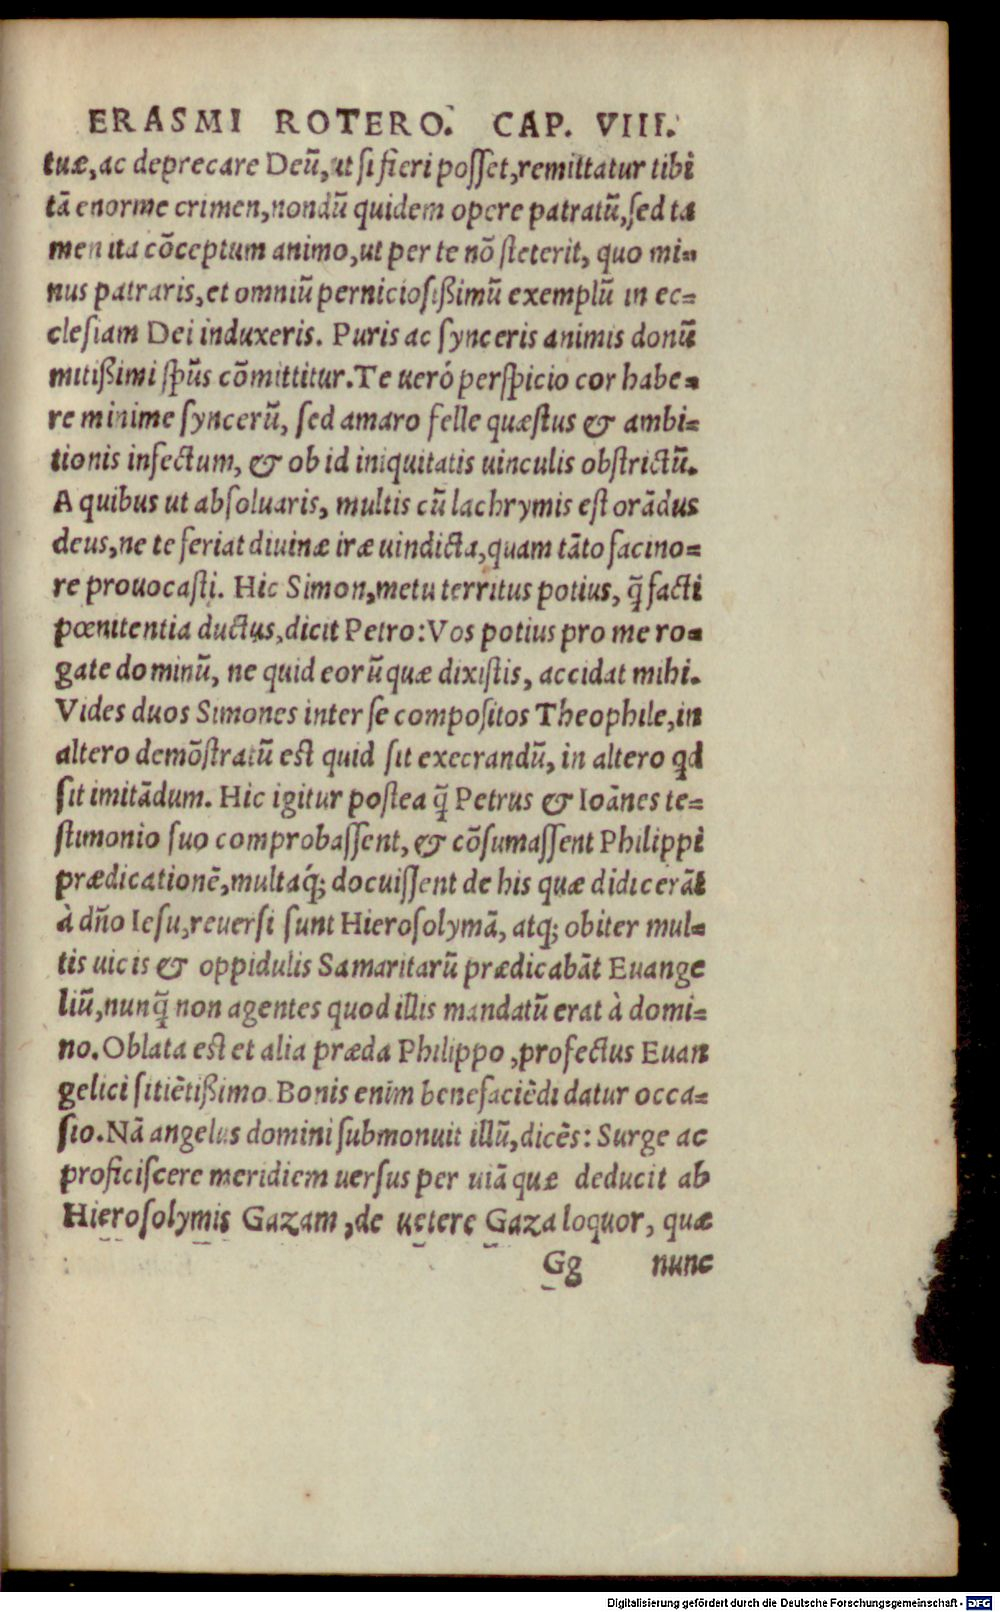 ERASMI ROTERO. CAP. VIII.
tuæ, ac deprecare Deũ, ut si fieri posset, remittatur tibi
tã enorme crimen, nondũ quidem opere patratũ, sed ta
men ita cõceptum animo, ut per te nõ steterit, quo mi=
nus patraris, et omniũ perniciosißimũ exemplũ in ec=
clesiam Dei induxeris. Puris ac synceris animis donũ
mitißimi spũs cõmittitur. Te ueró perspicio cor habe=
re minime syncerũ, sed amaro felle quæstus & ambi=
tionis infectum, & ob id iniquitatis uinculis obstrictũ.
A quibus ut absoluaris, multis cũ lachrymis est orãdus
deus, ne te feriat diuinæ iræ uindicta, quam tãto facino=
re prouocasti. Hic Simon, metu territus potius, q̃ facti
pœnitentia ductus, dicit Petro: Vos potius pro me ro=
gate dominũ, ne quid eorũ quæ dixistis, accidat mihi.
Vides duos Simones inter se compositos Theophile, in
altero demõstratũ est quid sit execrandũ, in altero qd
sit imitãdum. Hic igitur postea q̃ Petrus & Ioãnes te=
stimonio suo comprobassent, & cõsumassent Philippi
prædicationẽ, multaq́; docuissent de his quæ didicerãt
à dño Iesu, reuersi sunt Hierosolymã, atq; obiter mul=
tis uicis & oppidulis Samaritarũ prædicabãt Euange
liũ, nunq̃ non agentes quod illis mandatũ erat à domi=
no. Oblata est et alia præda Philippo, profectus Euan
gelici sitiẽtißimo. Bonis enim benefaciẽdi datur occa=
sio. Nã angelus domini submonuit illũ, dicẽs: Surge ac
proficiscere meridiem uersus per uiã quæ deducit ab
Hierosolymis Gazam, de uetere Gaza loquor, quæ
Gg nunc
Digitalisierung gefördert durch die Deutsche Forschungsgemeinschaft - DFG